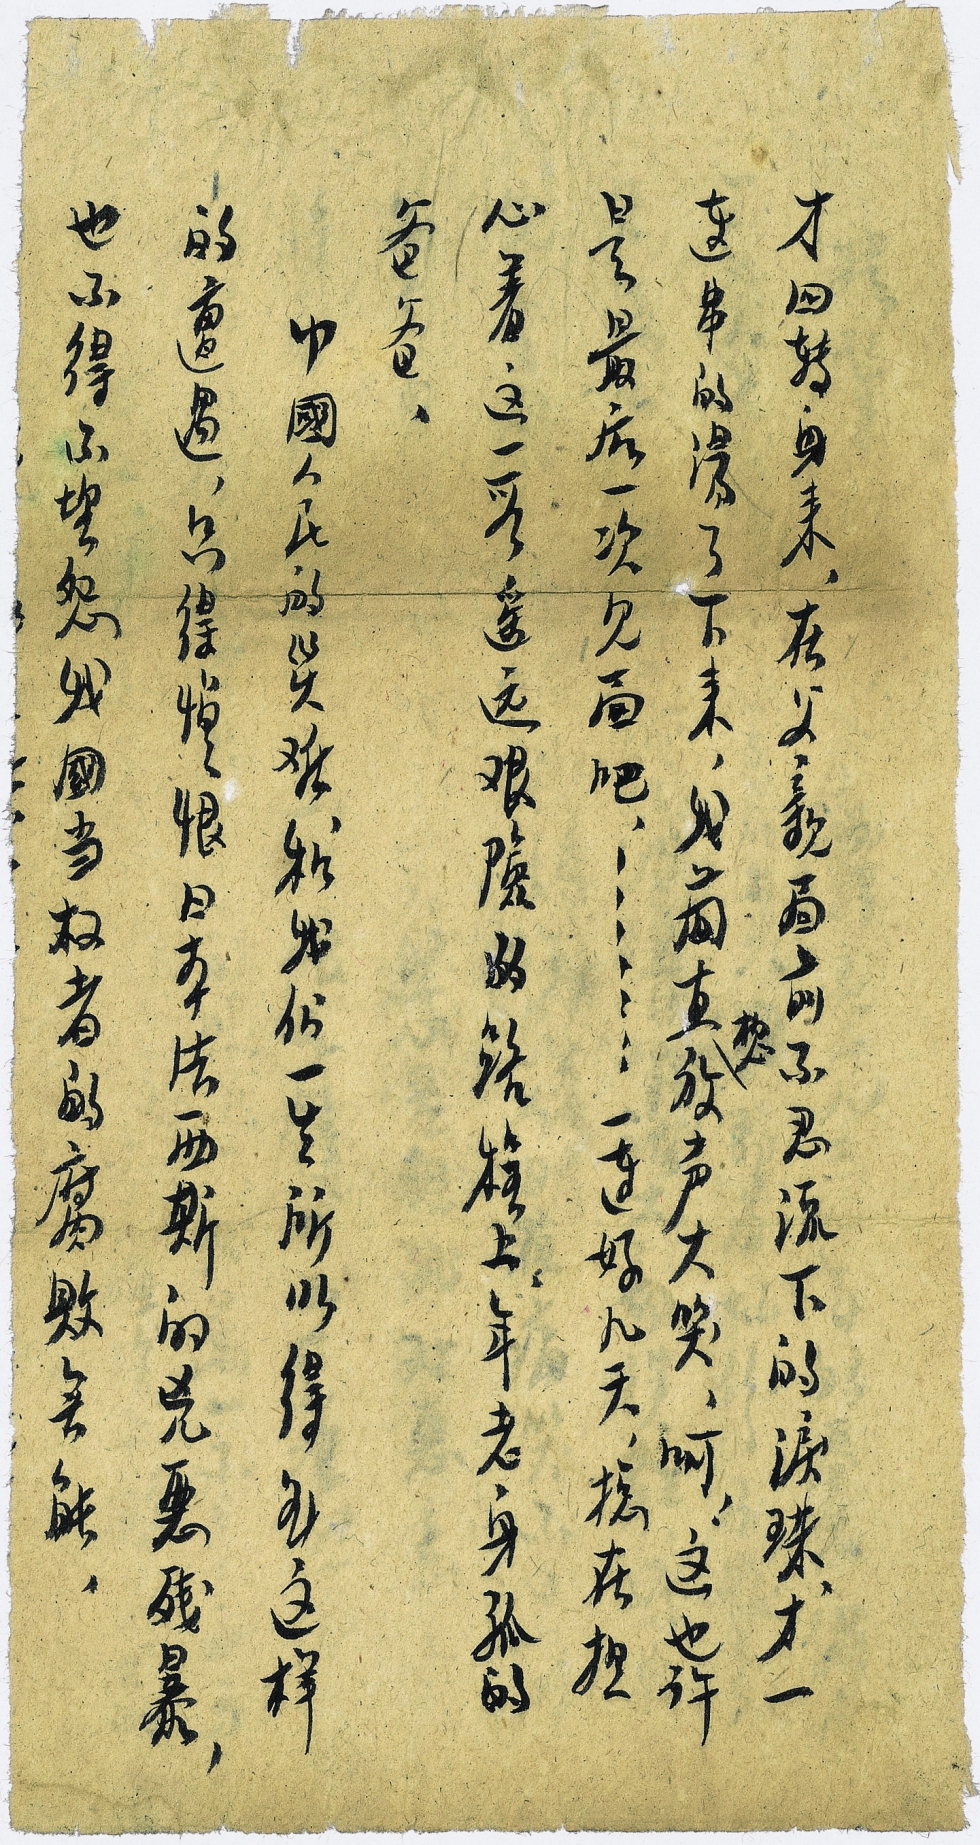 才回转身来、在父亲面前不忍流下的淚珠、才一
连串的湯了下来、我簡直想放声大哭、呵、这也许
是最后一次见面吧、……一连好几天、摠在担
心着这一段遥远艰險的路程上、年老身孤的
爸爸、
中國人民的災难、和我们一生所以得到这样
的遭遇、只得憎恨日本法西斯的兇惡残暴、
也不得不埋怨我國当权者的腐敗无能、